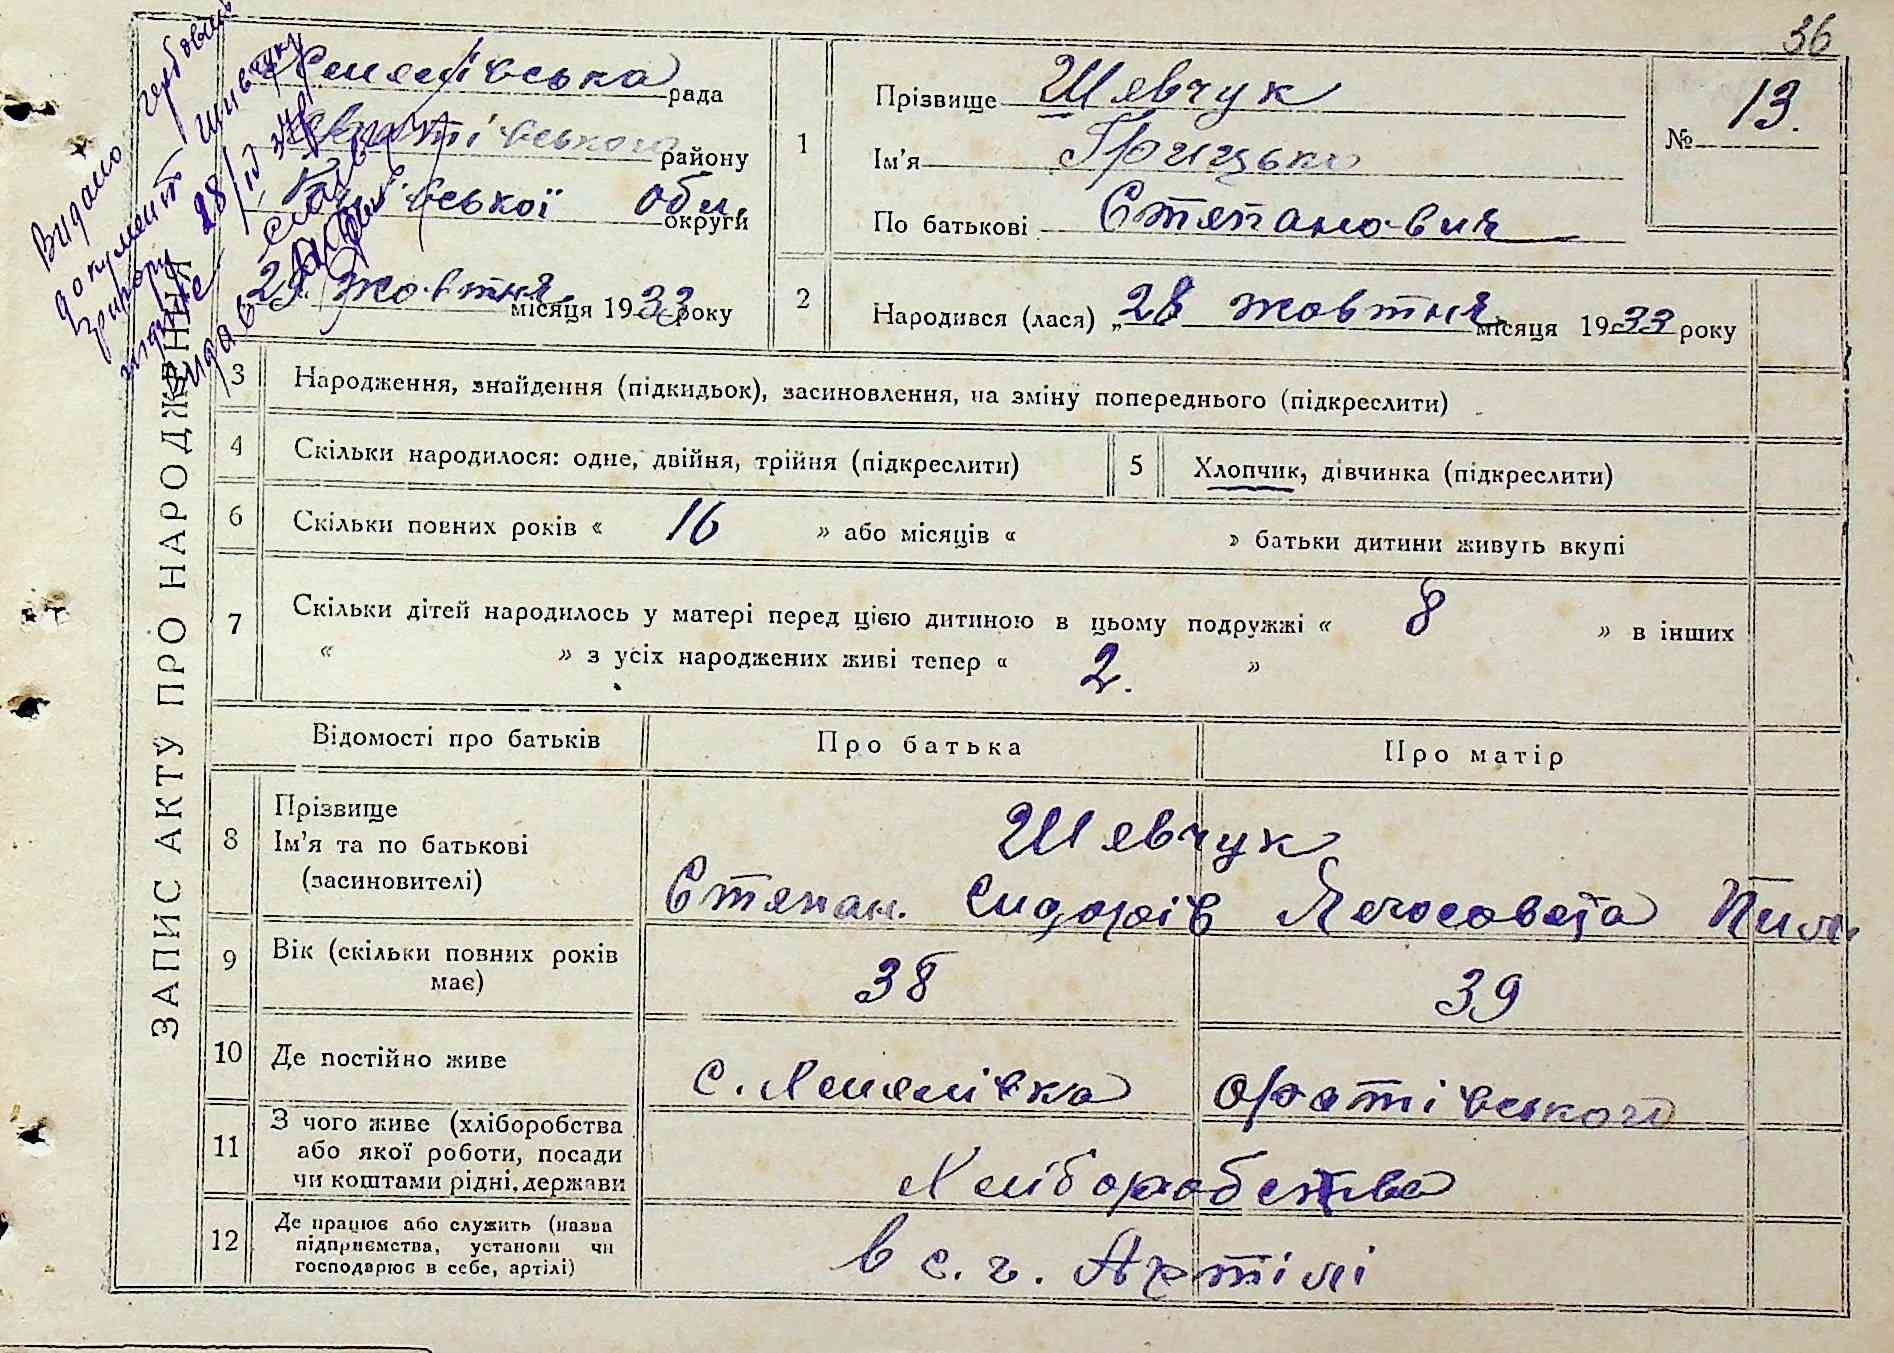 36
рада
району
Обл.
округи
29 Жовтня місяця 1933 року
1
Прізвище Шевчук
Ім'я Грицько
По батькові Степанович
№ 13.
2
Народився (лася) „28 жовтня місяця 1933 року
ЗАПИС АКТУ ПРО НАРОДЖЕННЯ
Видано гербовий
документ Шивчуку
28/IV
3
Народження, знайдення (підкидьок), засиновлення, на зміну попереднього (підкреслити)
4
Скільки народилося: одне, двійня, трійня (підкреслити)
5
Хлопчик, дівчинка (підкреслити)
6
Скільки повних років « 16 » або місяців « » батьки дитини живуть вкупі
7
Скільки дітей народилось у матері перед цією дитиною в цьому подружжі « 8 » в інших
« » з усіх народжених живі тепер « 2. »
Відомості про батьків
Про батька
Про матір
8
Прізвище
Ім'я та по батькові
(засиновителі)
Шевчук
Степан. Сидорів
9
Вік (скільки повних років
має)
38
39
10
Де постійно живе
с. оратівського
11
З чого живе (хліборобства
або якої роботи, посади
чи коштами рідні, держави
Хліборобства
12
Де працює або служить (назва
підприємства, установи чи
господарює в себе, артілі)
в с. г. Артілі